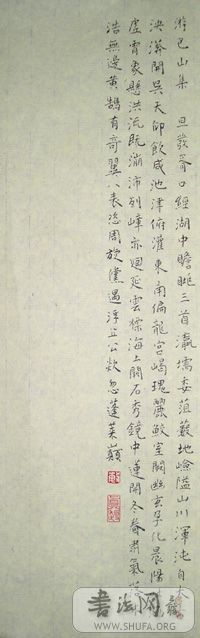 游包山集 旦發胥口經湖中瞻眺三首 瀛壖委菹藪地嶮隘山川渾沌自太
泱漭開吳天仰飲咸池津俯灌東南偏龍宮竭瑰麗鮫室闢幽玄孕化晨陽
虛霄象懸洪流既瀰沛列嶂亦迴延雲標海上闕石秀鏡中蓮開冬眷肅氣
浩無邊黃鵠有奇翼八表恣周旋儻遇浮丘公欻忽蓬萊巔
書法网
WWW.SHUFA.ORG